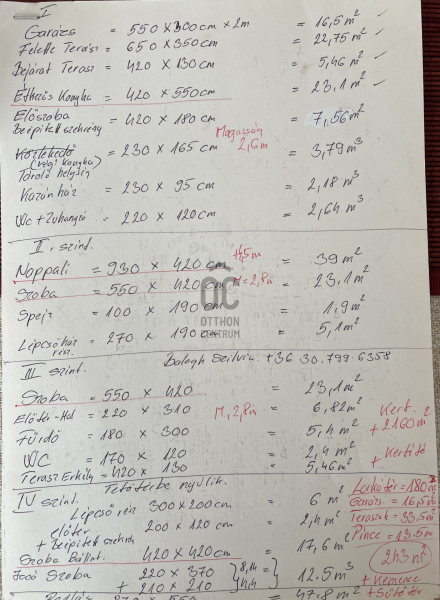 I
Garázs = 550 x 300 cm x 2m = 16,5 m² ✓
Felette Terasz = 650 x 350 cm = 22,75 m² ✓
Bejárat Terasz = 420 x 130 cm = 5,46 m² ✓
Étkezős Konyha = 420 x 550 cm = 23,1 m² ✓
Előszoba = 420 x 180 cm = 7,56 m²
Beépített szekrény
Magasság 2,6m
Közlekedő = 230 x 165 cm = 3,79 m³
(régi konyha)
Tároló helyiség
Kazánház = 230 x 95 cm = 2,18 m³
Wc + Zuhanyzó = 220 x 120 cm = 2,64 m³
II, szint.
Nappali = 930 x 420 cm = 39 m²
Szoba = 550 x 420 M = 2,8m = 23,1 m²
Spejz = 100 x 190 cm = 1,9 m²
OTTHON CENTRUM
Lépcsőház = 270 x 190 cm = 5,1 m²
rész.
Balogh Szilvia. +36.30.799-6358
III szint.
Szoba = 550 x 420 = 23,1 m²
Előtér-Hal = 220 x 310 M, 2,8m = 6,82 m²
Kert.
+ 2160 m²
Fürdő = 180 x 300 = 5,4 m²
WC = 170 x 120 = 2,4 m²
+ Kertitó
Terasz Erkély = 420 x 130 = 5,46 m²
Tetőtérbe nyúlik.
IV szint.
Lépcső rész 300 x 200 cm = 6 m²
Lakótér = 180 m²
Garázs. = 16,5 m²
előtér 200 x 120 cm = 2,4 m²
+ Beépített szekrény
Teraszok = 33,5 m²
Pince = 13,5 m
Szoba Bálint. 420 x 420 cm = 17,6 m²
243 m²
Szoba 220 x 370 8,14 = 12.5 m³
+ 210 x 210 4,4
+ Kemence
= 47,8 m²